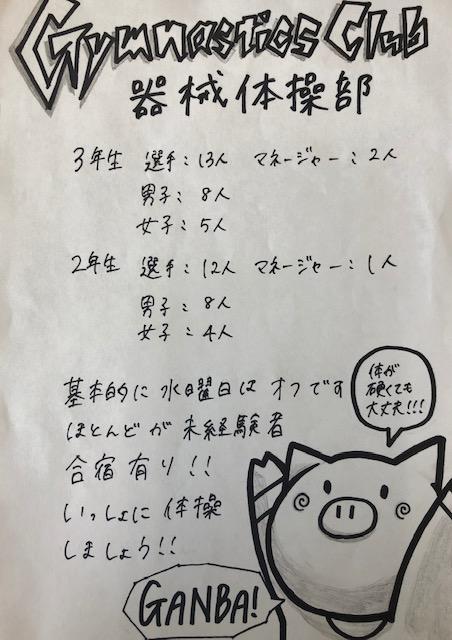 Gymnastics Club
器械体操部
3年生 選手：13人 マネージャー：2人
男子：8人
女子：5人
2年生 選手：12人 マネージャー：1人
男子：8人
女子：4人
基本的に水曜日はオフです
ほとんどが未経験者
合宿有り!!
いっしょに体操
しましょう!!
体が
硬くても
大丈夫!!!
GANBA!